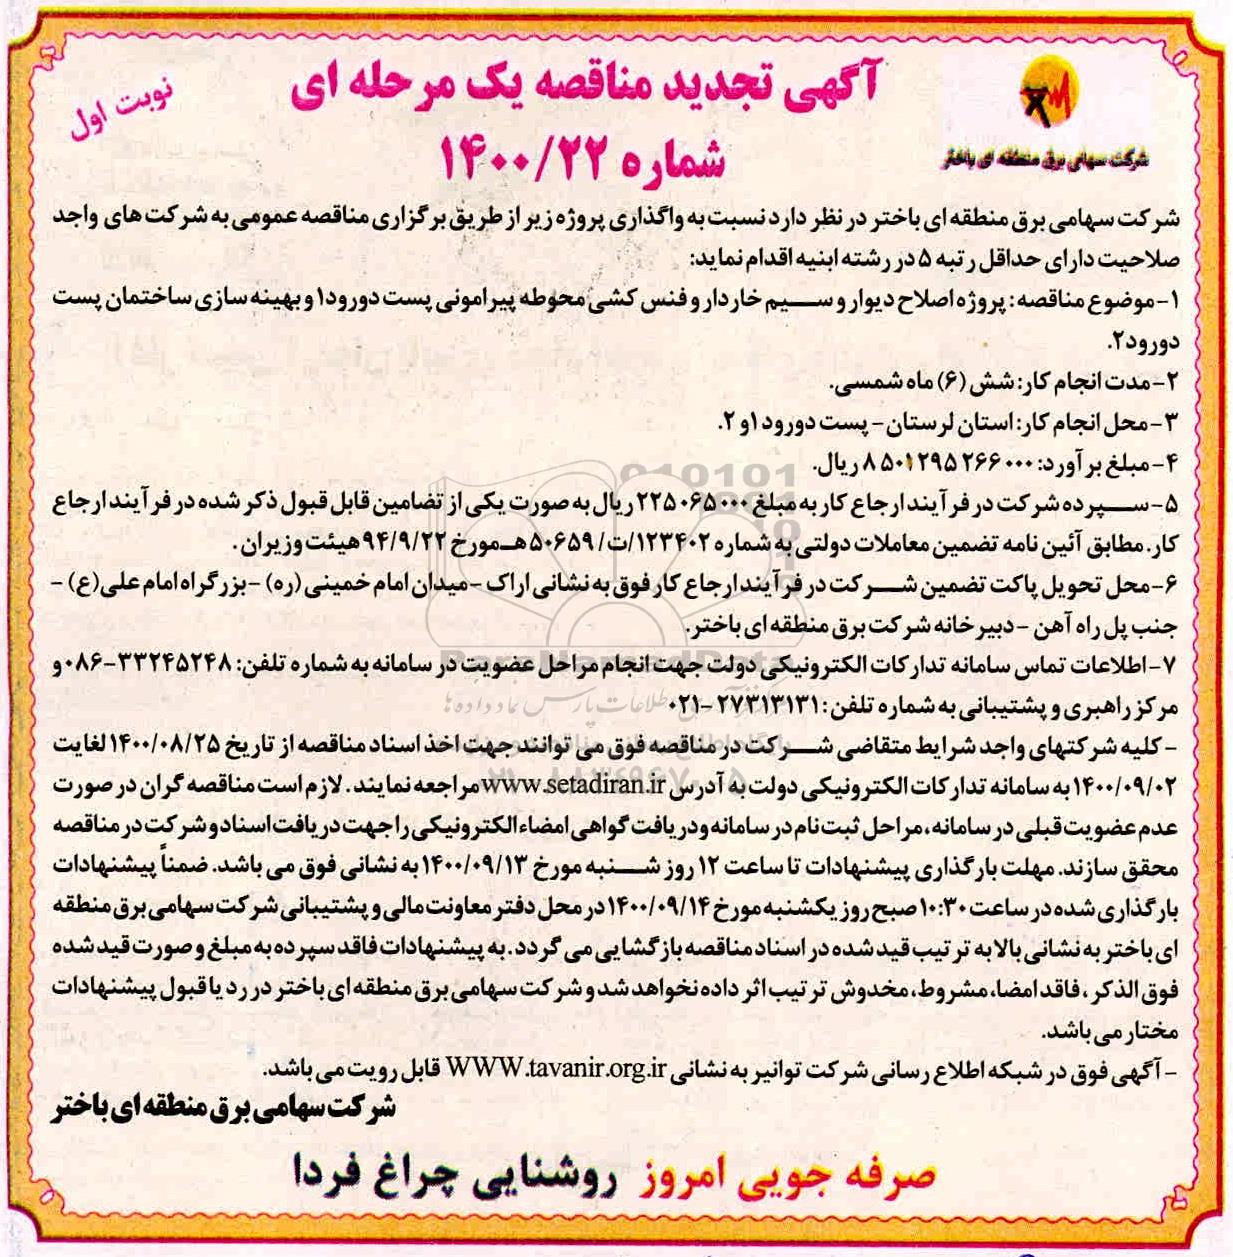 آگهی تجدید مناقصه یک مرحله ای
شماره ۱۴۰۰/۲۲
نوبت اول
شرکت سهامی برق منطقه ای باختر
شرکت سهامی برق منطقه ای باختر در نظر دارد نسبت به واگذاری پروژه زیر از طریق برگزاری مناقصه عمومی به شرکت های واجد
صلاحیت دارای حداقل رتبه ۵ در رشته ابنیه اقدام نماید:
۱-موضوع مناقصه: پروژه اصلاح دیوار و سیم خاردار و فنس کشی محوطه پیرامونی پست دورود۱ و بهینه سازی ساختمان پست
دورود۲.
۲-مدت انجام کار: شش (۶) ماه شمسی.
۳-محل انجام کار: استان لرستان- پست دورود ۱و ۲.
۴-مبلغ برآورد: ۸۵۰۱۲۹۵۲۶۶۰۰۰ ریال.
۵-سپرده شرکت در فرآیند ارجاع کار به مبلغ ۲۲۵۰۶۵۰۰۰ ریال به صورت یکی از تضامین قابل قبول ذکر شده در فرآیند ارجاع
کار. مطابق آئین نامه تضمین معاملات دولتی به شماره ۱۲۳۴۰۲/ت/ ۵۰۶۵۹هـ مورخ ۹۴/۹/۲۲ هیئت وزیران.
۶-محل تحویل پاکت تضمین شرکت در فرآیند ارجاع کار فوق به نشانی اراک -میدان امام خمینی (ره) -بزرگراه امام علی (ع) -
جنب پل راه آهن -دبیرخانه شرکت برق منطقه ای باختر.
۷-اطلاعات تماس سامانه تدارکات الکترونیکی دولت جهت انجام مراحل عضویت در سامانه به شماره تلفن: ۳۳۲۴۵۲۴۸-۰۸۶ و
مرکز راهبری و پشتیبانی به شماره تلفن: ۲۷۳۱۳۱۳۱-۰۲۱
- کلیه شرکتهای واجد شرایط متقاضی شرکت در مناقصه فوق می توانند جهت اخذ اسناد مناقصه از تاریخ ۱۴۰۰/۰۸/۲۵ لغایت
۱۴۰۰/۰۹/۰۲ به سامانه تدارکات الکترونیکی دولت به آدرس www.setadiran.ir مراجعه نمایند. لازم است مناقصه گران در صورت
عدم عضویت قبلی در سامانه، مراحل ثبت نام در سامانه و دریافت گواهی امضاء الکترونیکی را جهت دریافت اسناد و شرکت در مناقصه
محقق سازند. مهلت بارگذاری پیشنهادات تا ساعت ۱۲ روز شنبه مورخ ۱۴۰۰/۰۹/۱۳ به نشانی فوق می باشد. ضمناً پیشنهادات
بارگذاری شده در ساعت ۱۰:۳۰ صبح روز یکشنبه مورخ ۱۴۰۰/۰۹/۱۴ در محل دفتر معاونت مالی و پشتیبانی شرکت سهامی برق منطقه
ای باختر به نشانی بالا به ترتیب قید شده در اسناد مناقصه بازگشایی می گردد. به پیشنهادات فاقد سپرده به مبلغ و صورت قید شده
فوق الذکر، فاقد امضا، مشروط، مخدوش ترتیب اثر داده نخواهد شد و شرکت سهامی برق منطقه ای باختر در رد یا قبول پیشنهادات
مختار می باشد.
- آگهی فوق در شبکه اطلاع رسانی شرکت توانیر به نشانی WWW.tavanir.org.ir قابل رویت می باشد.
شرکت سهامی برق منطقه ای باختر
صرفه جویی امروز روشنایی چراغ فردا